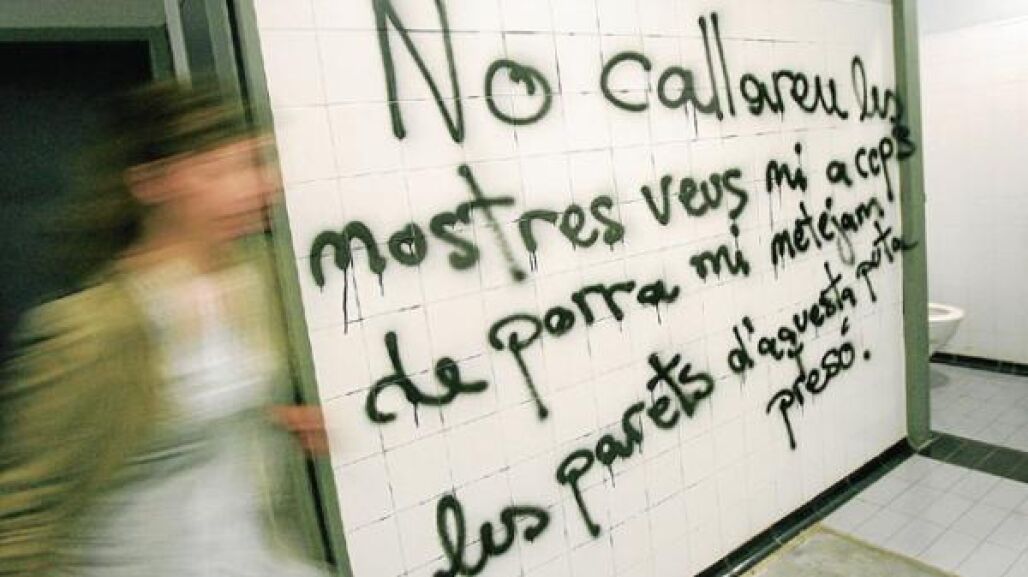 No callareu les
nostres veus ni a cops
de porra ni netejam
les parets d'aquesta puta
presó.